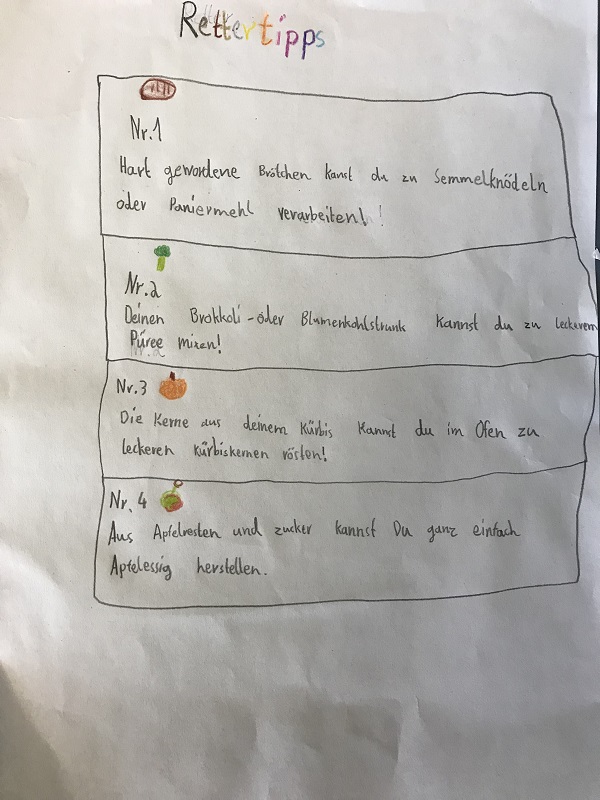 Rettertipps
Nr.1
Hart gewordene Brötchen kanst du zu Semmelknödeln
oder Paniermehl verarbeiten!!
Nr.2
Deinen Brokkoli-oder Blumenkohlstrunk kannst du zu leckerem
Püree mixen!
Nr.2
Nr.3
Die Kerne aus deinem Kürbis kannst du im Ofen zu
leckeren Kürbiskernen rösten!
Nr. 4
Aus Apfelresten und zucker kannst Du ganz einfach
Apfelessig herstellen.